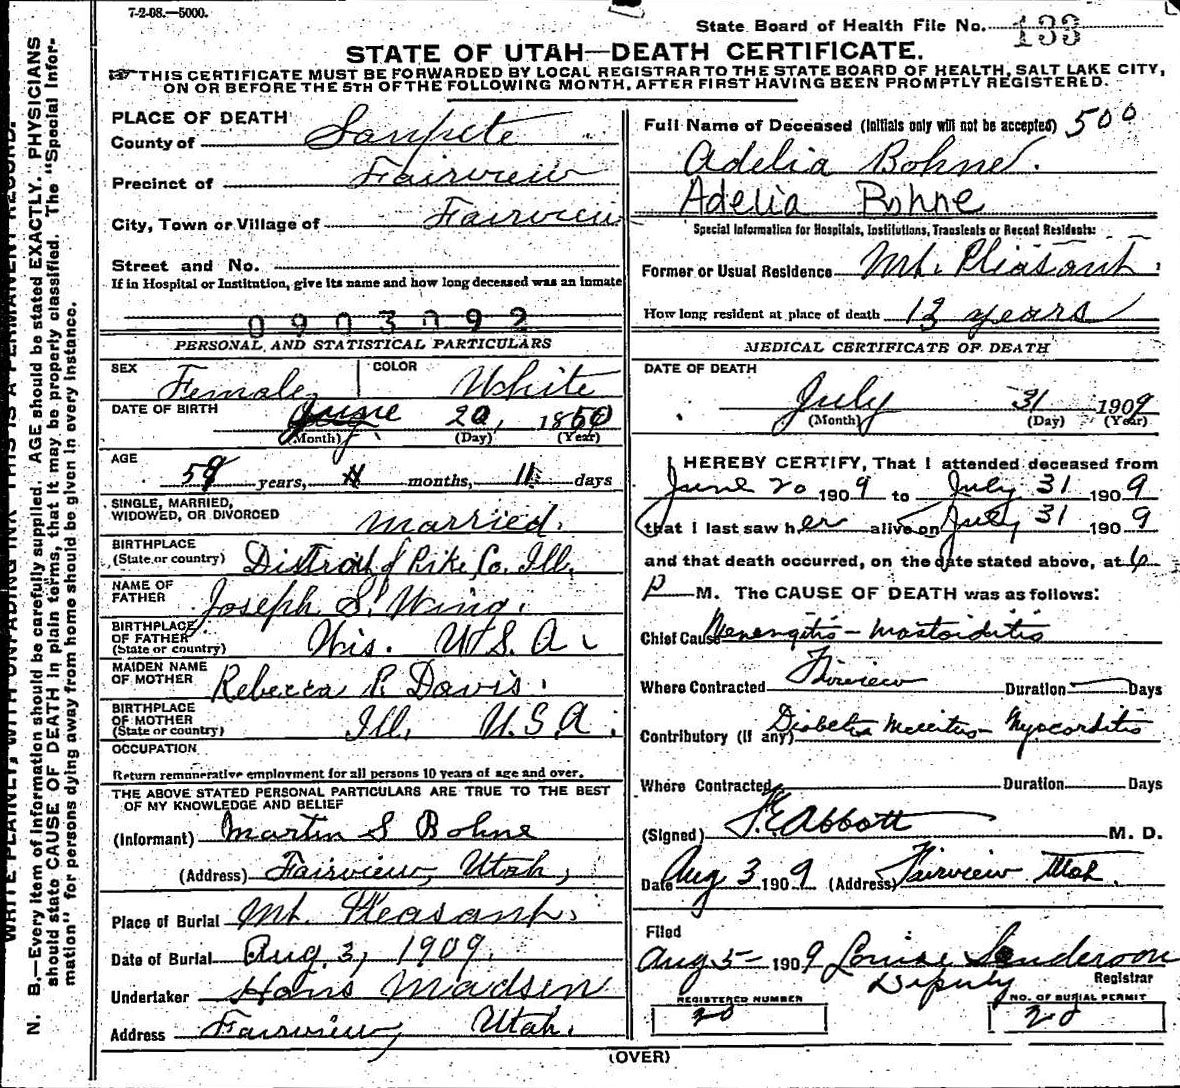 7-2-08.—5000.
State Board of Health File No. 133
STATE OF UTAH—DEATH CERTIFICATE.
THIS CERTIFICATE MUST BE FORWARDED BY LOCAL REGISTRAR TO THE STATE BOARD OF HEALTH, SALT LAKE CITY,
ON OR BEFORE THE 5TH OF THE FOLLOWING MONTH, AFTER FIRST HAVING BEEN PROMPTLY REGISTERED.
WRITE PLAINLY, WITH UNFADING INK—THIS IS A PERMANENT RECORD.
N. B.—Every item of information should be carefully supplied. AGE should be stated EXACTLY. PHYSICIANS
should state CAUSE OF DEATH in plain terms, that it may be properly classified. The "Special Infor-
mation" for persons dying away from home should be given in every instance.
PLACE OF DEATH
County of Sanpete
Precinct of Fairview
City, Town or Village of Fairview
Street and No.
If in Hospital or Institution, give its name and how long deceased was an inmate
0903092
PERSONAL AND STATISTICAL PARTICULARS
SEX Female COLOR White
DATE OF BIRTH
20, 18
(Month) (Day) (Year)
AGE
59 years, months, 11 days
SINGLE, MARRIED,
WIDOWED, OR DIVORCED Married.
BIRTHPLACE
(State or country) of Pike Co. Ill.
NAME OF
FATHER Joseph S. Wing.
BIRTHPLACE
OF FATHER
(State or country) Wis. U.S.A.
MAIDEN NAME
OF MOTHER Rebecca P. Davis.
BIRTHPLACE
OF MOTHER
(State or country) Ill. U.S.A.
OCCUPATION
Return remunerative employment for all persons 10 years of age and over.
THE ABOVE STATED PERSONAL PARTICULARS ARE TRUE TO THE BEST
OF MY KNOWLEDGE AND BELIEF
(Informant) Martin S Bohne
(Address) Fairview, Utah,
Place of Burial Mt. Pleasant.
Date of Burial Aug. 3, 1909.
Undertaker Hans Madsen
Address Fairview, Utah.
Full Name of Deceased (Initials only will not be accepted) 500
Adelia Bohne.
Adelia Bohne
Special Information for Hospitals, Institutions, Transients or Recent Residents:
Former or Usual Residence Mt. Pleasant.
How long resident at place of death 13 years
MEDICAL CERTIFICATE OF DEATH
DATE OF DEATH
July 31 1909
(Month) (Day) (Year)
I HEREBY CERTIFY, That I attended deceased from
June 20 1909 to July 31 1909
that I last saw her alive on July 31 1909
and that death occurred, on the date stated above, at 6
P M. The CAUSE OF DEATH was as follows:
Chief Cause Menengitis - Mastoiditis
Where Contracted Fairview Duration Days
Contributory (if any) Diabetes Mellitus - Myocarditis
Where Contracted Duration Days
(Signed) Abbott M. D.
Date Aug 3 1909 (Address) Fairview Utah.
Filed
Aug 5 - 1909 Louise Sanderson
Deputy Registrar
REGISTERED NUMBER
20
NO. OF BURIAL PERMIT
20
(OVER)